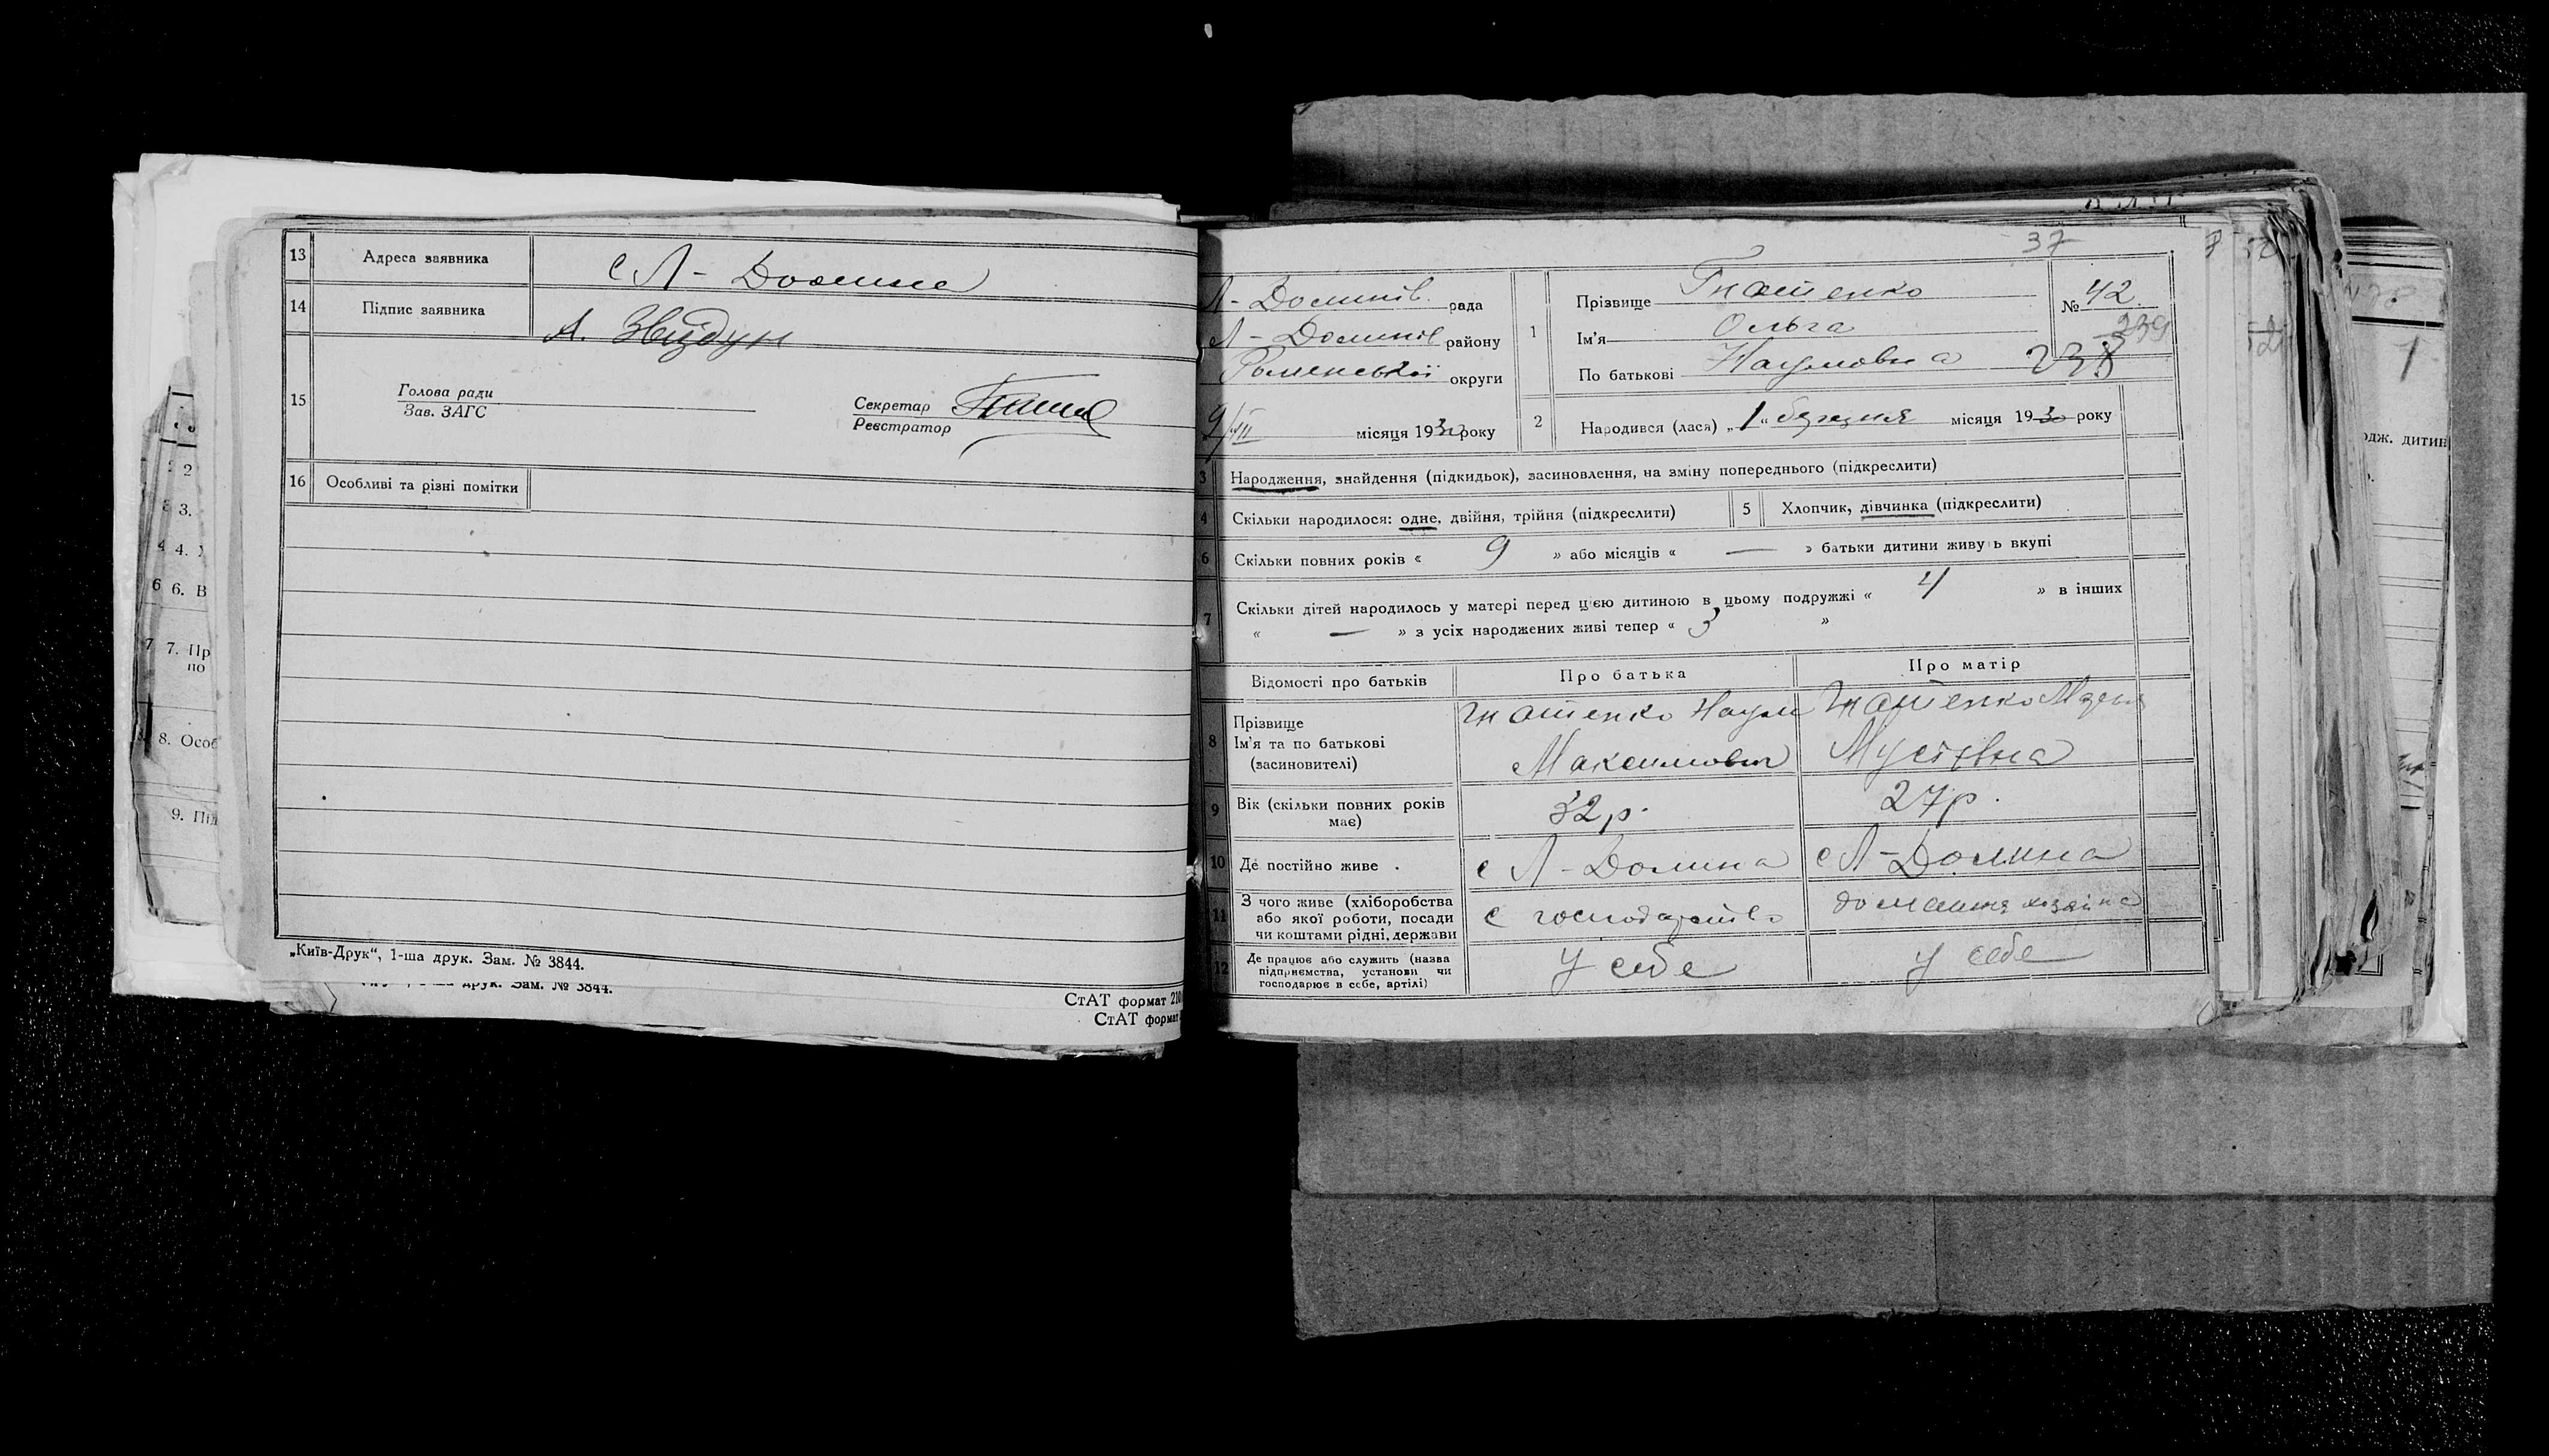 13 Адреса заявника с Л - Долина
14 Підпис заявника А. Звіздун
15 Голова ради
Зав. ЗАГС
Секретар
Реєстратор
16 Особливі та різні помітки
„Київ-Друк“, 1-ша друк. Зам. № 3844.
СтАТ формат 210
СтАТ формат
2 2
3.
4 4.
6 6. В
7 7. Пр
по
8. Особ
9. Під
37
Л - Долинів. рада
Л - Долинів району
Роменської округи
9/III місяця 1930 року
1 Прізвище Гнатенко
Ім'я Ольга
По батькові Наумовна
№ 42
239
238
2 Народився (лася) „1“ березня місяця 1930 року
3 Народження, знайдення (підкидьок), засиновлення, на зміну попереднього (підкреслити)
4 Скільки народилося: одне, двійня, трійня (підкреслити) 5 Хлопчик, дівчинка (підкреслити)
6 Скільки повних років « 9 » або місяців « — » батьки дитини живу ь вкупі
7 Скільки дітей народилось у матері перед цією дитиною в цьому подружжі « 4 » в інших
« — » з усіх народжених живі тепер « 3 »
Відомості про батьків Про батька Про матір
8 Прізвище
Ім'я та по батькові
(засиновителі)
Гнатенко Наум
Максимович
Гнатенко
Мусіївна
9 Вік (скільки повних років
має)
32 р. 27 р.
10 Де постійно живе . с Л - Долина с Л - Долина
11 З чого живе (хліборобства
або якої роботи, посади
чи коштами рідні, держави
с господарство домашня хозяйка
12 Де працює або служить (назва
підприємства, установи чи
господарює в себе, артілі)
у себе у себе
одж. дитин